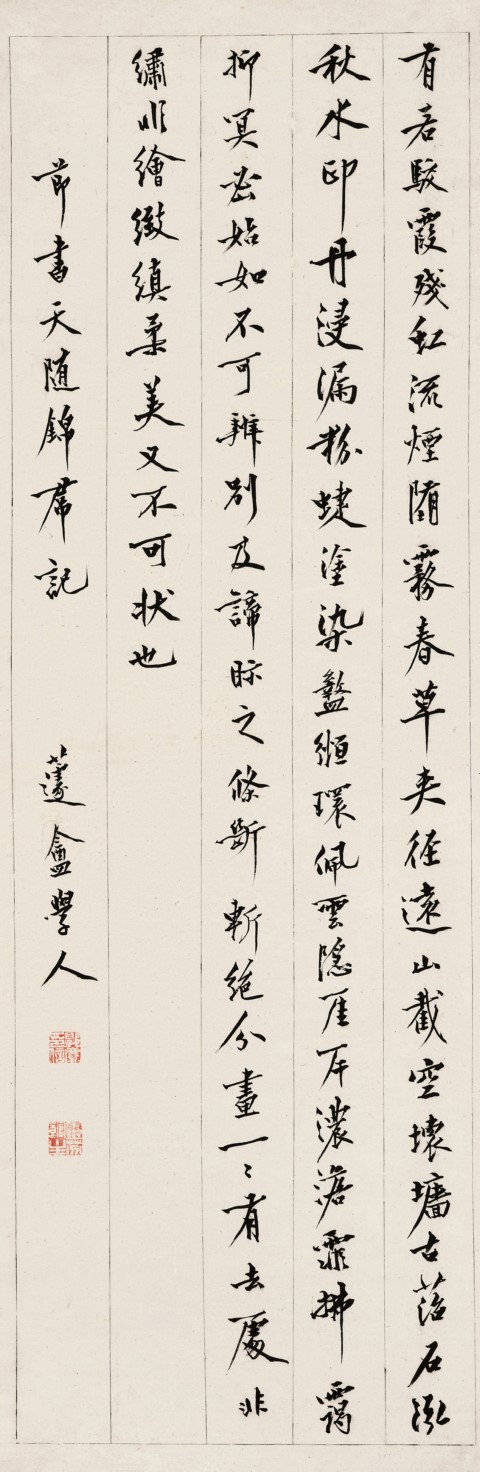 有若駁霞殘虹流煙墮霧春草夾徑遠山截空壞墻古苔石泓
秋水印丹浸漏粉蜨塗染盭縆環佩雲隱厓岸濃澹霏拂靄
抑冥密始如不可辨別及諦眎之條斷斬絕分畫一々有去處非
繡非繪緻縝柔美又不可状也
節書天随錦帬記
蘧盦學人